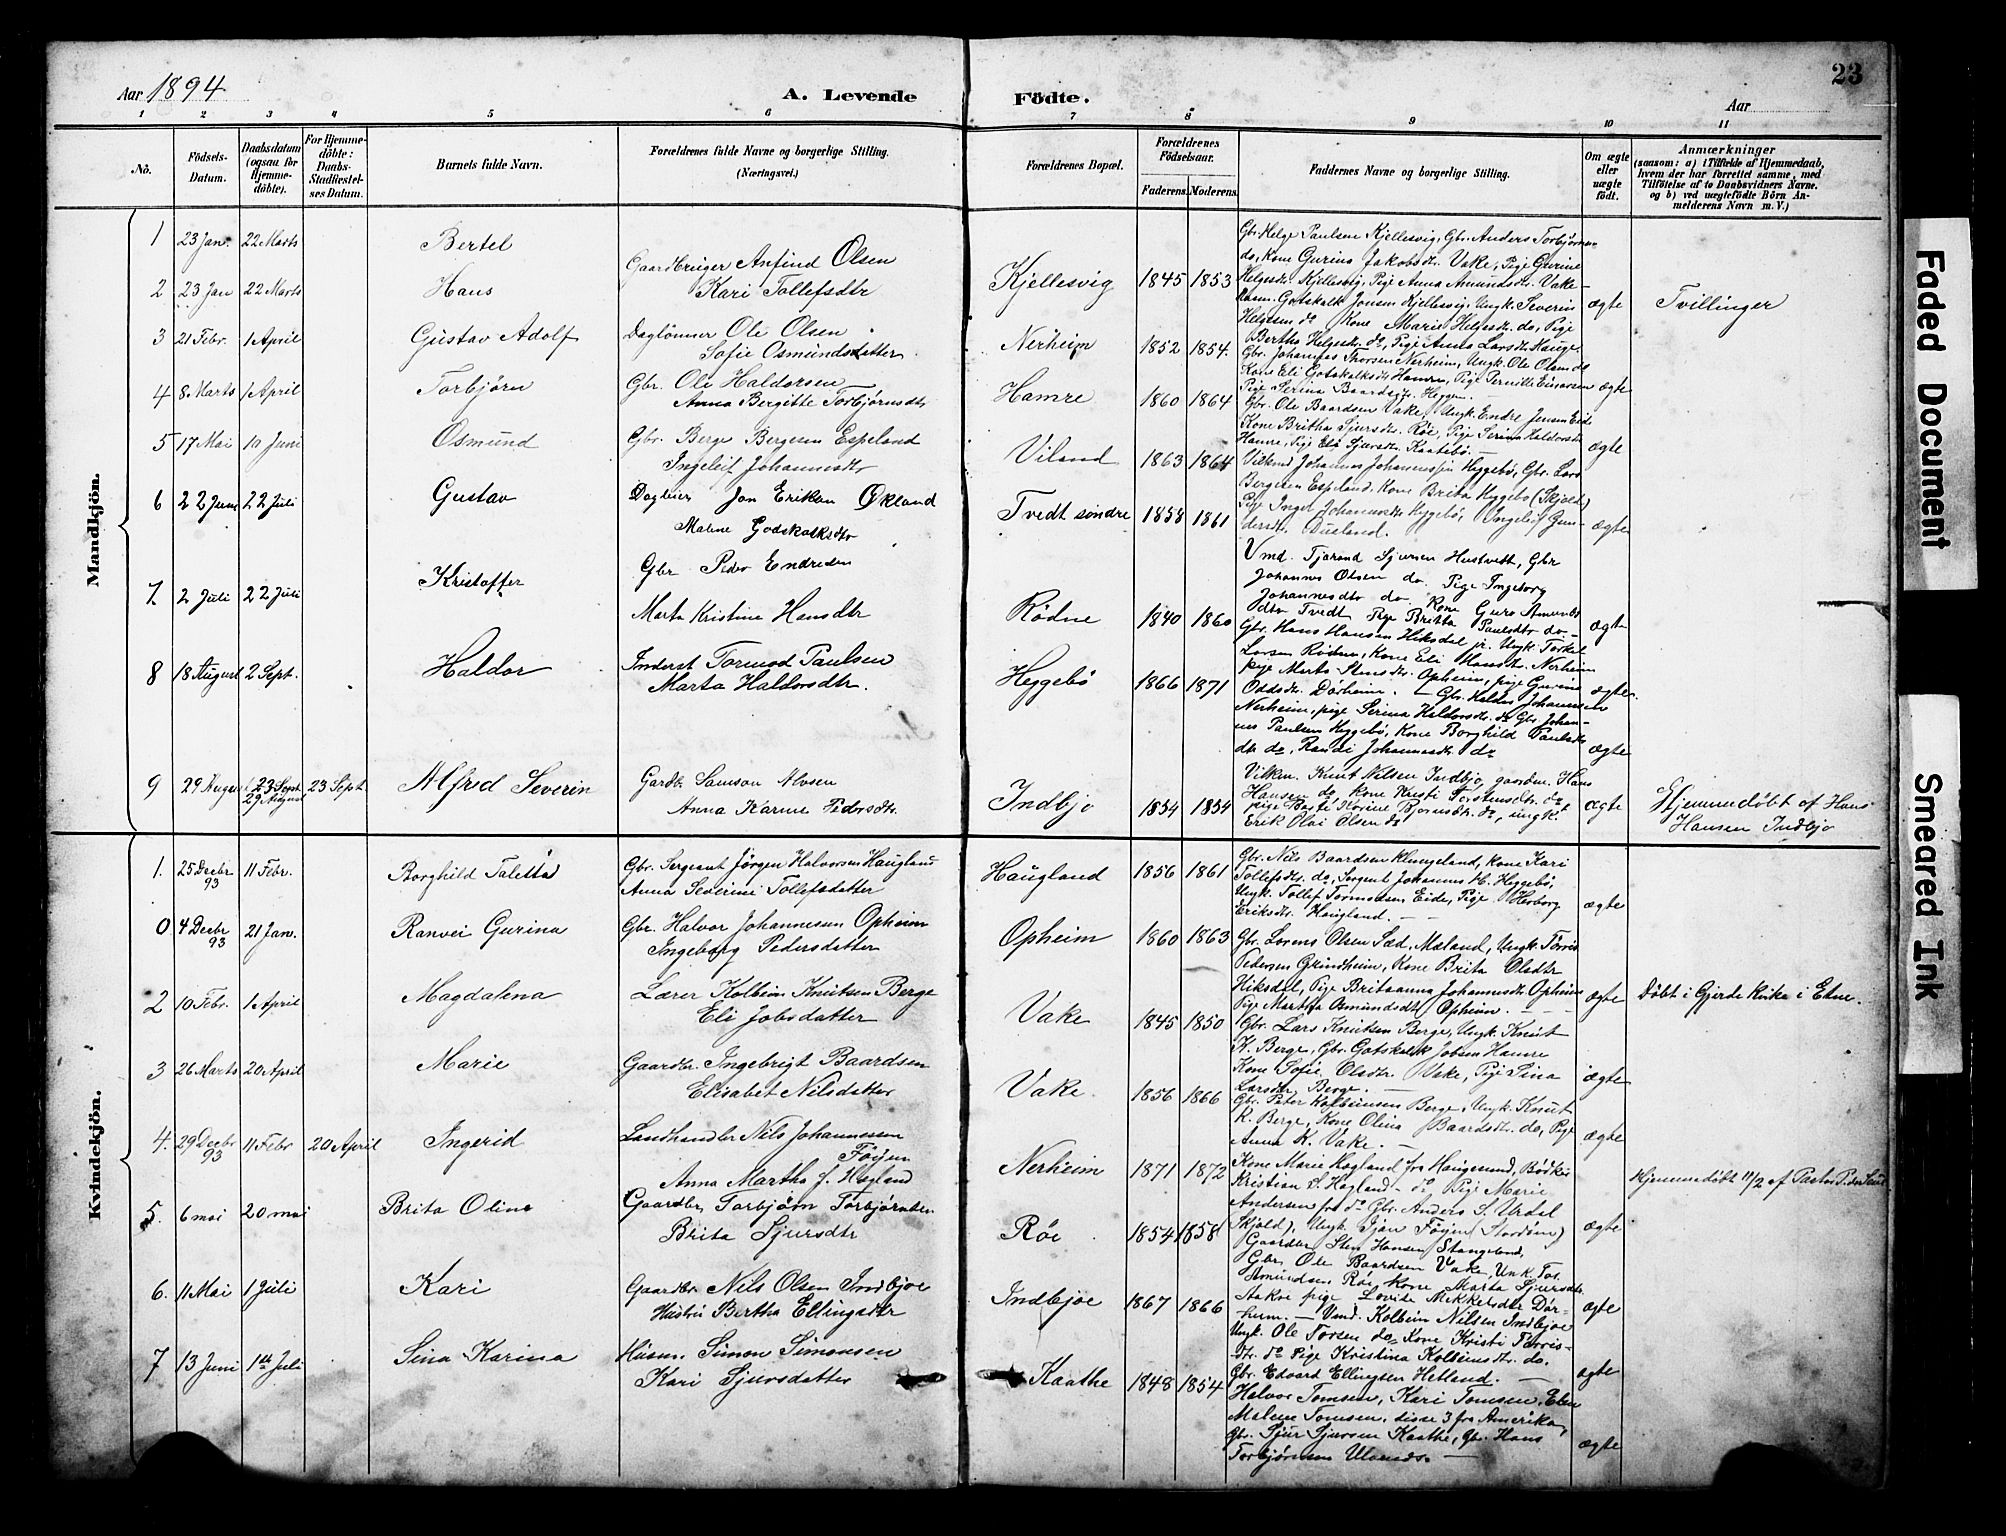 Aar 1894
A. Levende Födte.
Aar
23
1 2 3 4 5 6 7 8 9 10 11
No.
Födsels-Datum.
Daabsdatum (ogsaa for Hjemme-döbte).
For Hjemme-döbte: Daabs-Stadfæstel-ses Datum.
Barnets fulde Navn.
Forældrenes fulde Navne og borgerlige Stilling.
(Næringsvei.)
Forældrenes Bopæl.
Forældrenes Födselsaar.
Faderens. Moderens.
Faddernes Navne og borgerlige Stilling.
Om ægte eller uægte födt.
Anmærkninger
(saasom: a) i Tilfælde af Hjemmedaab, hvem der har forrettet samme, med Tilföielse af to Daabsvidners Navne, og b) ved uægtefödte Börn An-melderens Navn m. V.)
Mandkjön.
1 23 Jan. 22 Marts Bertel
Gaardbruger Anfind Olsen
2 23 Jan 22 Marts Hans Kari Tollefsdtr Kjellesvig 1845 1853 ægte Tvillinger
Gbr. Helge Paulsen Kjellesvig, Gbr. Anders Torbjørnsen
do, Kone Gurina Jakobsdtr. Vake, Pige Gurine
Helgesdtr. Kjellesvig, Pige Anna Amundsdtr. Vake
Gotskalk Jonsen Kjellesvig, Ungk. Severin
Helgesen do Kone Marie Helgesdtr. do, Pige
Bertha Helgesdtr. do, Pige Anna Larsdtr. Hauge.
3 21 Febr. 1 April Gustav Adolf Daglönner Ole Olsen
Sofie Osmundsdatter Nerheim 1852 1854. ægte
Gbr. Johannes Thorsen Nerheim, Ungk. Ole Olsen do
Kone Eli Gotskalksdtr Hamre, Pige Pernille Einarsen
Pige Serina Baardsdtr. Heggen.
4 8 Marts 1 April Torbjörn Gbr. Ole Haldorsen
Anna Bergitte Torbjørnsdtr Hamre 1860 1864 ægte
Gbr. Ole Baardsen Vake, Ungk. Endre Jensen Eide
Kone Britha Sjursdtr. Röe, Pige Serina Haldorsdtr
Hamre, Pige Eli Sjursdtr. Kaatebö.
5 17 Mai 10 Juni Osmund Gbr. Berge Bergesen Espeland
Ingeleif Johannesdtr Viland 1863 1864 ægte
Johannes Johannessen Heggebö, Gbr. Lars
Bergesen Espeland, Kone Brita Heggebö (Skjold)
Pige Ingel Johannesdtr Heggebö, Ingeleif
6 22 Juni 22 Juli Gustav Daglejer Jon Eriksen Ökland
Malene Godskalksdtr Tvedt söndre 1858 1861 ægte
Vmd. Tjærand Sjursen Hustvedt, Gbr
Johannes Olsen do. Pige Ingeborg
Johannesdtr do. Kone Guro Amunds
dtr Tvedt Pige Britta Paulsdtr do
7. 2 Juli 22 Juli Kristoffer Gbr Peder Endresen
Marta Kristine Hansdtr Rödne 1840 1860 ægte
Gbr. Hans Hansen Hiksdal jr. Ungk. Torkel
Larsen Rödne, Kone Eli Hansdtr. Nerheim
pige Marta Stensdtr. Opheim, pige Gurine
Oddsdtr. Dörheim.
8 18 August 2 Sept. Haldor Inderst Tormod Paulsen
Marta Haldorsdtr. Heggebö 1866 1871 ægte
Gbr. Haldor Johannesen
Nerheim, pige Serina Haldorsdtr. do Gbr Johan-
nes Paulsen Heggebö, Kone Borghild Pauls
dtr do, Randi Johannesdtr. do
9 29 August 23 Sept. 29 August 23 Sept. Alfred Severin Gardb. Samson Alvsen
Anna Karine Pedersdtr. Indbjo 1854 1854 ægte
Knut Nilsen Indbjo, gaardm. Hans
Hansen do Kone Kristi Torstensdtr. do
pige Karine Bjornsdtr. do, ungk.
Erik Olai Olsen do
Hjemmedöbt af Hans
Hansen Indbjo
Kvindekjön.
1. 25 Decbr 93 11 Febr. Borghild Taletta Gbr. Sergeant Jörgen Halvorsen Haugland
Anna Severine Tollefsdatter Haugland 1856 1861 ægte
Gbr. Nils Baardsen Klungeland, Kone Kari
Tollefsdtr. do, Sergent Johannes H. Heggebö,
Ungk. Tollef Tormodsen Eide, Pige Herborg
Eriksdtr. Haugland.
0 4 Decbr 93 21 Jan. Ranvei Gurina Gbr. Halvor Johannesen Opheim
Ingeborg Pedersdatter Opheim 1860 1863 ægte
Gbr. Lorens Olsen Sæd, Mæland, Ungk. Törres
Pedersen Grindheim, Kone Brita Olsdtr
Hiksdal, Pige Britaanna Johannesdtr. Opheim
Pige Martha Osmundsdtr Opheim.
2 10 Febr. 1 April Magdalena Lærer Kolbein Knutsen Berge
Eli Jobsdatter Vake 1845 1850 ægte
Döbt i Gjerde Kirke i Etne.
Gbr. Lars Knutsen Berge, Ungk. Knut
K. Berge, Gbr. Gotskalk Jobsen Hamre
Kone Sofie Olsdtr. Vake, Pige Sina
Larsdtr. Berge.
3 26 Marts 20 April Marie Gaardbr. Ingebrigt Baardsen
Elisabet Nilsdatter Vake. 1856 1866 ægte
Gbr. Peter Kolbeinsen Berge, Ungk. Knut
K. Berge, Kone Olina Baardsdtr. do, Pige
Anna K. Vake.
4. 29 Decbr 93 11 Febr 20 April Ingerid Landhandler Nils Johannessen
Föyen
Anna Martha f. Hagland Nerheim 1871 1872 ægte
Kone Marie Hagland fra Haugesund, Bödker
Kristian Hagland do Pige Marie
Andersen fra do Gbr. Anders S. Urdal
Skjold), Ungk. Sjän Föyen (Stordöen)
Hjemmedöbt 11/2 af Pastor
5. 6 mai 20 mai Brita Olina Gaardbr. Torbjörn Torbjörnsen
Brita Sjursdtr Röe 1854 1858 ægte
Gaardbr. Sten Hansen Stangeland,
Gbr. Ole Baardsen Vake, Unk. Tor
Amundsen Röe, Kone Marta Sjursdtr.
Stakoe pige Lovise Mikkelsdtr Dör-
heim.
6. 11 Mai 1 Juli Kari Gaardbr. Nils Olsen Indbjoe
Hustru Bertha Ellingsdtr Indbjoe 1867 1866 ægte
Vmd. Kolbein Nilsen Indbjoe
Ungk. Ole Torsen do Kone Kristi Tørris-
dtr. do Pige Kristina Kolbeinsdtr. do.
Gbr. Edvard Ellingsen Hetland.
7 13 Juni 1 Juli Sina Karina Husm. Simon Simonsen
Kari Sjursdatter Kaathe 1848 1854 ægte
Halvor Tomsen, Kari Tomsen, Elen
Malene Tomsen, disse 3 fra Amerika,
Gbr. Sjur Sjursen Kaathe, Gbr. Hans
Torbjörnsen Ulands.
ægte
Faded Document
Smeared Ink